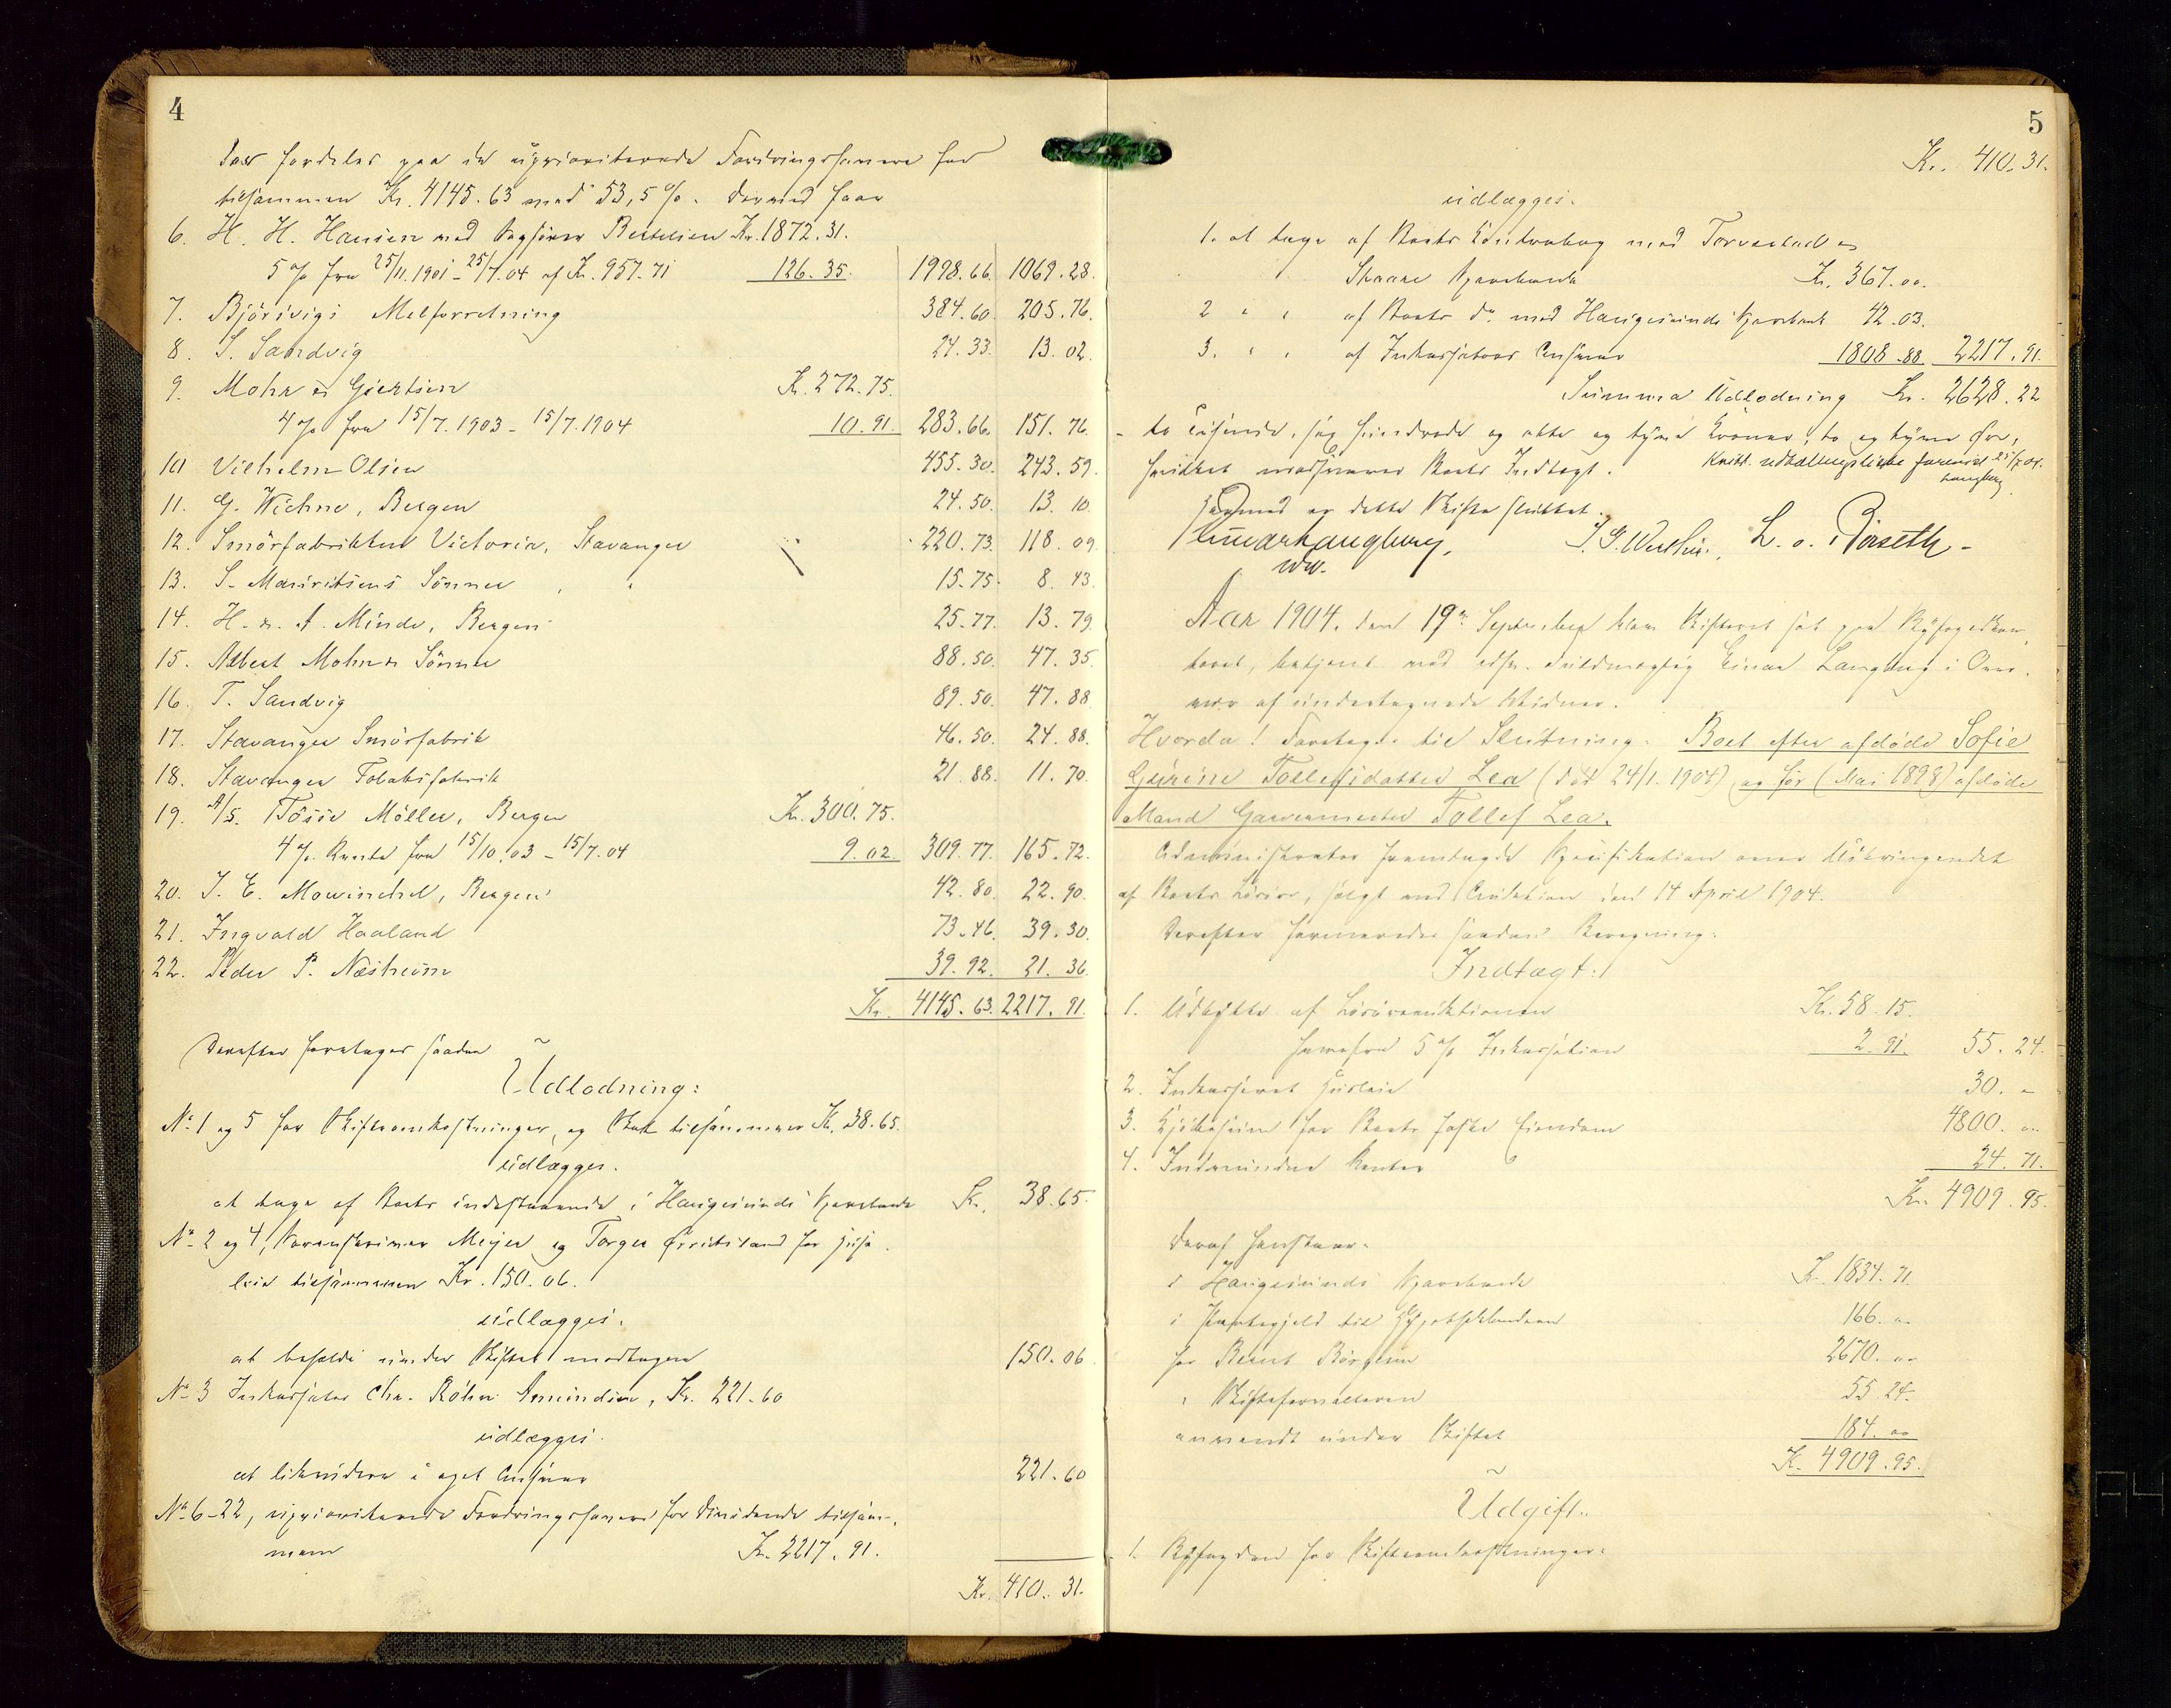 4
der fordeles paa de uprioriterede Fordringshavere for
tilsammen Kr. 4145.63 med 53,5 %. Dermed faar
6. H. H. Hansen med Sagfører Bertelsen Kr. 1872.31.
5 % fra 25/11.1901 - 25/7.04 af Kr. 957.71 126.35. 1998.66. 1069.28.
7. Björsvigs Melforretning 384.60. 205.76.
8. S. Sandvig 24.33. 13.02.
9. Mohr & Giertsen Kr. 272.75.
4 % fra 15/7.1903 - 15/7.1904 10.91. 283.66. 151.76.
10. Vilhelm Olsen 455.30. 243.59.
11. G. Wiehne, Bergen 24.50. 13.10.
12. Smörfabrikken Victoria, Stavanger 220.73. 118.09.
13. S. Mauritsens Sönner " 15.75. 8.43.
14. H. & A. Minde, Bergen 25.77. 13.79.
15. Albert Mohn & Sönner 88.50. 47.35.
16. T. Sandvig 89.50. 47.88.
17. Stavanger Smörfabrik 46.50. 24.88.
18. Stavanger Tobaksfabrik 21.88. 11.70.
19. A/S. Tösse Möller, Bergen Kr. 300.75.
4 % Rente fra 15/10.03 - 15/7.04 9.02. 309.77. 165.72.
20. J. E. Mowinckel, Bergen 42.80. 22.90.
21. Ingvald Haaland 73.46. 39.30.
22. Peder P. Næsheim 39.92. 21.36.
Kr. 4145.63. 2217.91.
Derefter foretages saadan
Udlodning:
No 1 og 5 for Skifteomkostninger, og Skat tilsammen Kr. 38.65.
udlægges.
at tage af Boets indestaaende i Haugesunds Sparebank Kr. 38.65.
No 2 og 4, Meyer og Torger for Husleie
tilsammen Kr. 150.06.
udlægges.
at beholde under Skiftet modtagne 150.06.
No 3 Inkassator Chr. Röhn Amundsen, Kr. 221.60
udlægges.
at likvidere i eget Ansvar 221.60
No 6-22, uprioriterede Fordringshavere for Dividende tilsam-
men Kr. 2217.91.
Kr. 410.31.
5
Kr. 410.31.
udlægges.
1. at tage af Boets Kontrabog med Torvestad &
Skaare Sparebank Kr. 367.00.
2 " " af Boets do. med Haugesunds Sparebank 42.03.
3. " " af Inkassators Ansvar 1808.88 2217.91.
Summa Udlodning Kr. 2628.22
- to Tusinde, sex Hundrede og otte og tyve Kroner, to og tyve Øre,
hvilket modsvarer Boets Indtægt. Kvitt. udbetalingsliste forevist 25/7 04.
Langberg
Hermed er dette Skifte sluttet.
Einar Langberg.
Aar 1904, den 19de September blev Skifteret sat paa Byfogedkon-
toret, betjent med edsv. Fuldmægtig Einar Langberg i Over-
vær af undertegnede Vidner.
Hvorda! Foretoges til Slutning: Boet efter afdöde Sofie
Gurine Tollefsdatter Lea (död 24/1. 1904) og för (Mai 1898) afdöde
Mand Garvermester Tollef Lea.
Administrator fremlagde Specifikation over Udbringendet
af Boets Lösöre, solgt ved Auktion den 14 April 1904.
Derefter formeredes saadan Beregning:
Indtægt:
1. Udbytte af Lösöreauktionen Kr. 58.15.
herefra 5 % Inkassation 2.91. 55.24.
2. Inkasseret Husleie 30. "
3. Kjöbesum for Boets faste Eiendom 4800. "
4. Indvundne Renter 24.71.
Kr. 4909.95.
Deraf henstaar:
i Haugesunds Sparebank Kr. 1834.71
i Pantegjeld til Hypothekbanken 166. "
for Bernt Börsheim 2670. "
" Skifteforvalteren 55.24.
anvendt under Skiftet 184. "
Kr. 4909.95.
Udgift.
1. Byfogden for Skifteomkostninger: